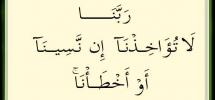 رَبَّنَـــا
لَا تُؤَاخِذْنَآ إِن نَّسِينَآ
أَوْ أَخْطَـأْنَاۚ